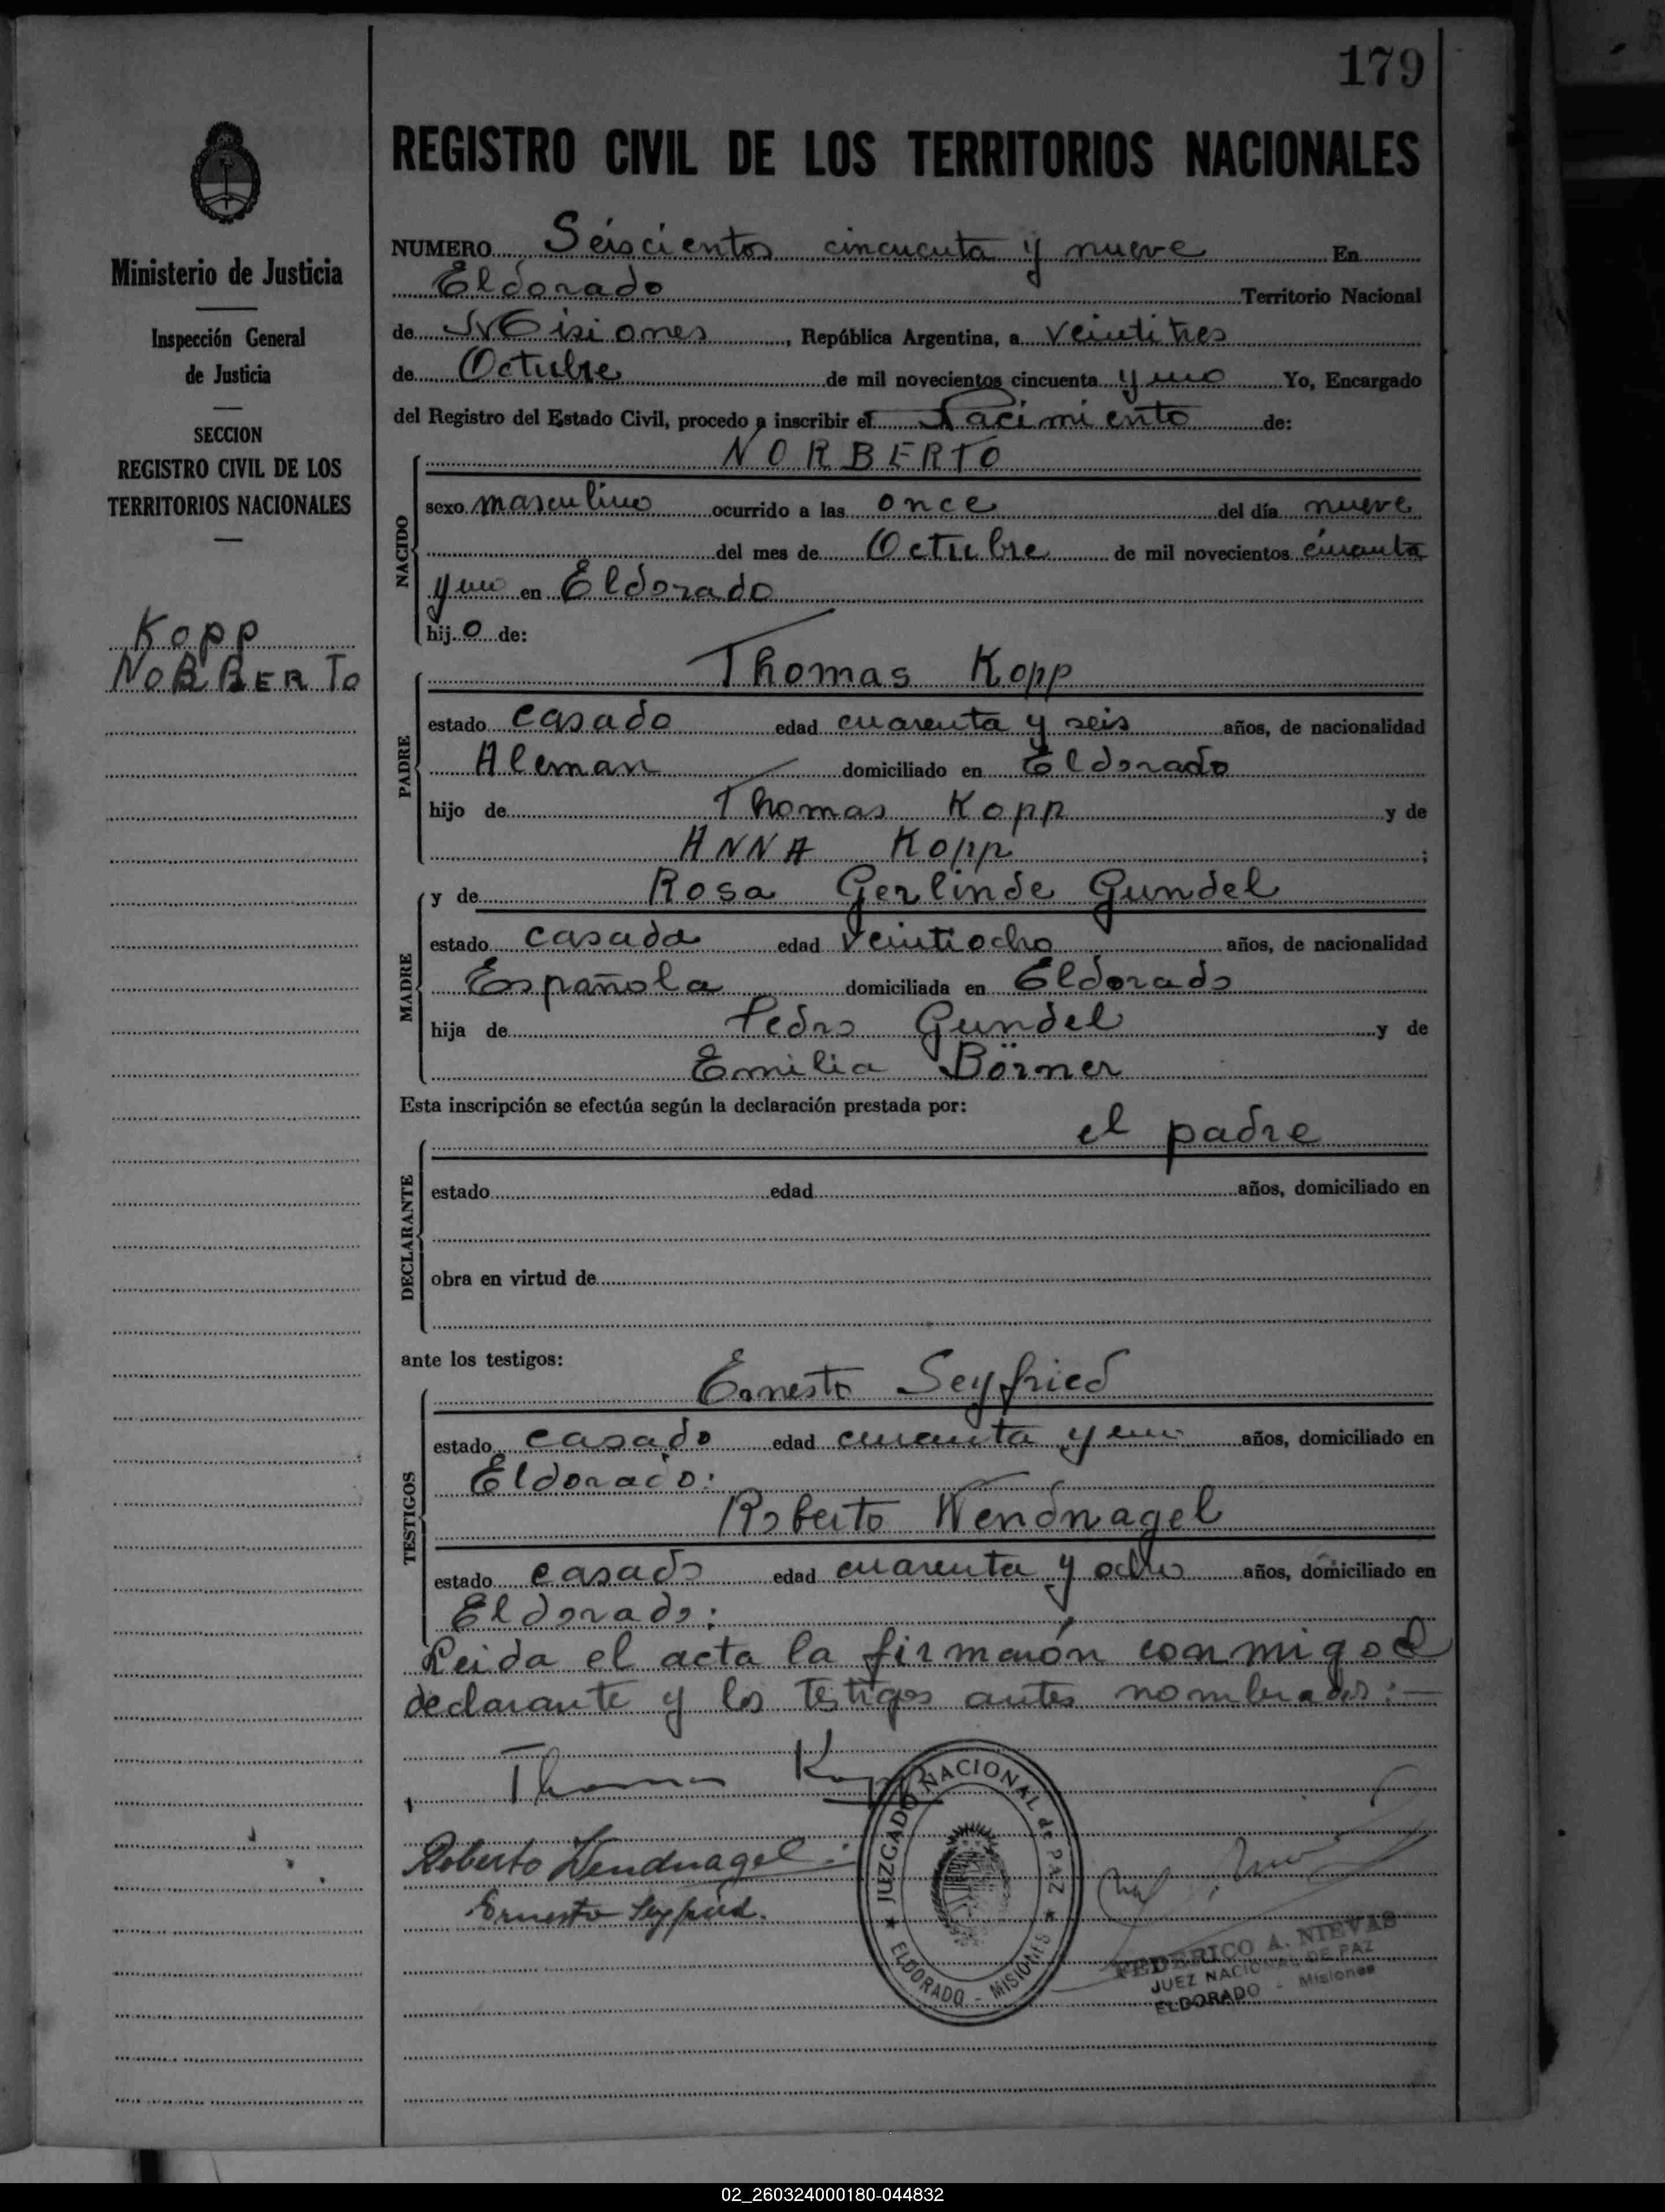 179
REGISTRO CIVIL DE LOS TERRITORIOS NACIONALES
Ministerio de Justicia
Inspección General
de Justicia
SECCION
REGISTRO CIVIL DE LOS
TERRITORIOS NACIONALES
Kopp
NORBERTO
NUMERO Seiscientos cincuenta y nueve En
Eldorado Territorio Nacional
de Misiones, República Argentina, a veintitres
de Octubre de mil novecientos cincuenta y uno Yo, Encargado
del Registro del Estado Civil, procedo a inscribir el Nacimiento de:
NACIDO
NORBERTO
sexo masculino ocurrido a las once del día nueve
del mes de Octubre de mil novecientos cincuenta
y uno en Eldorado
hij o de:
PADRE
Thomas Kopp
estado casado edad cuarenta y seis años, de nacionalidad
Aleman domiciliado en Eldorado
hijo de Thomas Kopp y de
ANNA Kopp ;
MADRE
y de Rosa Gerlinde Gundel
estado casada edad veintiocho años, de nacionalidad
Española domiciliada en Eldorado
hija de Pedro Gundel y de
Emilia Börner
Esta inscripción se efectúa según la declaración prestada por:
el padre
DECLARANTE
estado edad años, domiciliado en
obra en virtud de
ante los testigos:
TESTIGOS
Ernesto Seyfried
estado casado edad y uno años, domiciliado en
Eldorado:
Roberto Wendnagel
estado casado edad cuarenta y ocho años, domiciliado en
Eldorado:
Leida el acta la firmarón conmigo el
declarante y los testigos antes nombrados:—
Thomas Kopp
Roberto Wendnagel
Ernesto Seyfried.
JUZGADO NACIONAL de PAZ
ELDORADO - MISIONES
FEDERICO A. NIEVAS
JUEZ NACIONAL DE PAZ
ELDORADO - Misiones
02_260324000180-044832